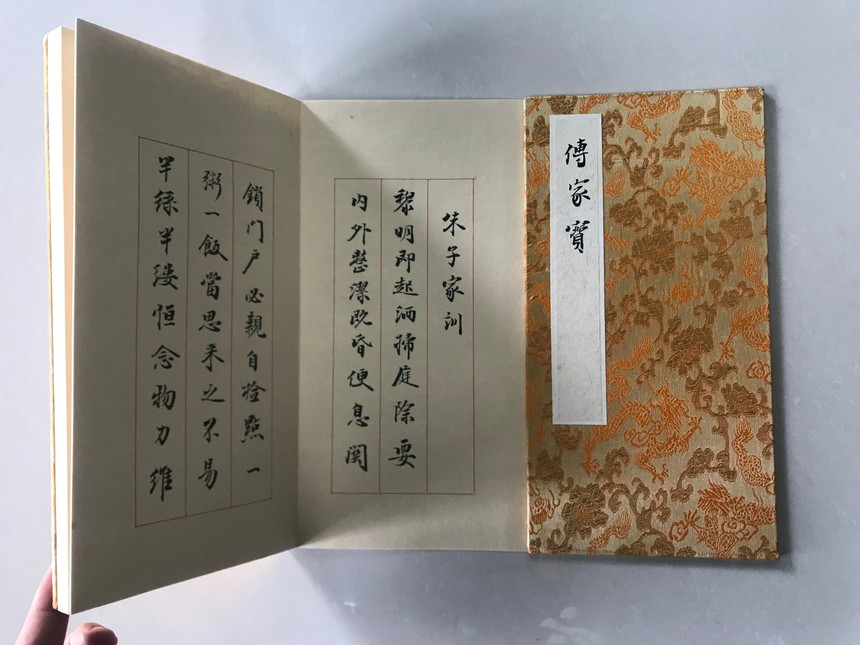 傳家寶
朱子家训
黎明即起洒掃庭除要
内外整潔既昏便息関
鎖门户必親自检點一
粥一飯當思来之不易
半絲半缕恒念物力維